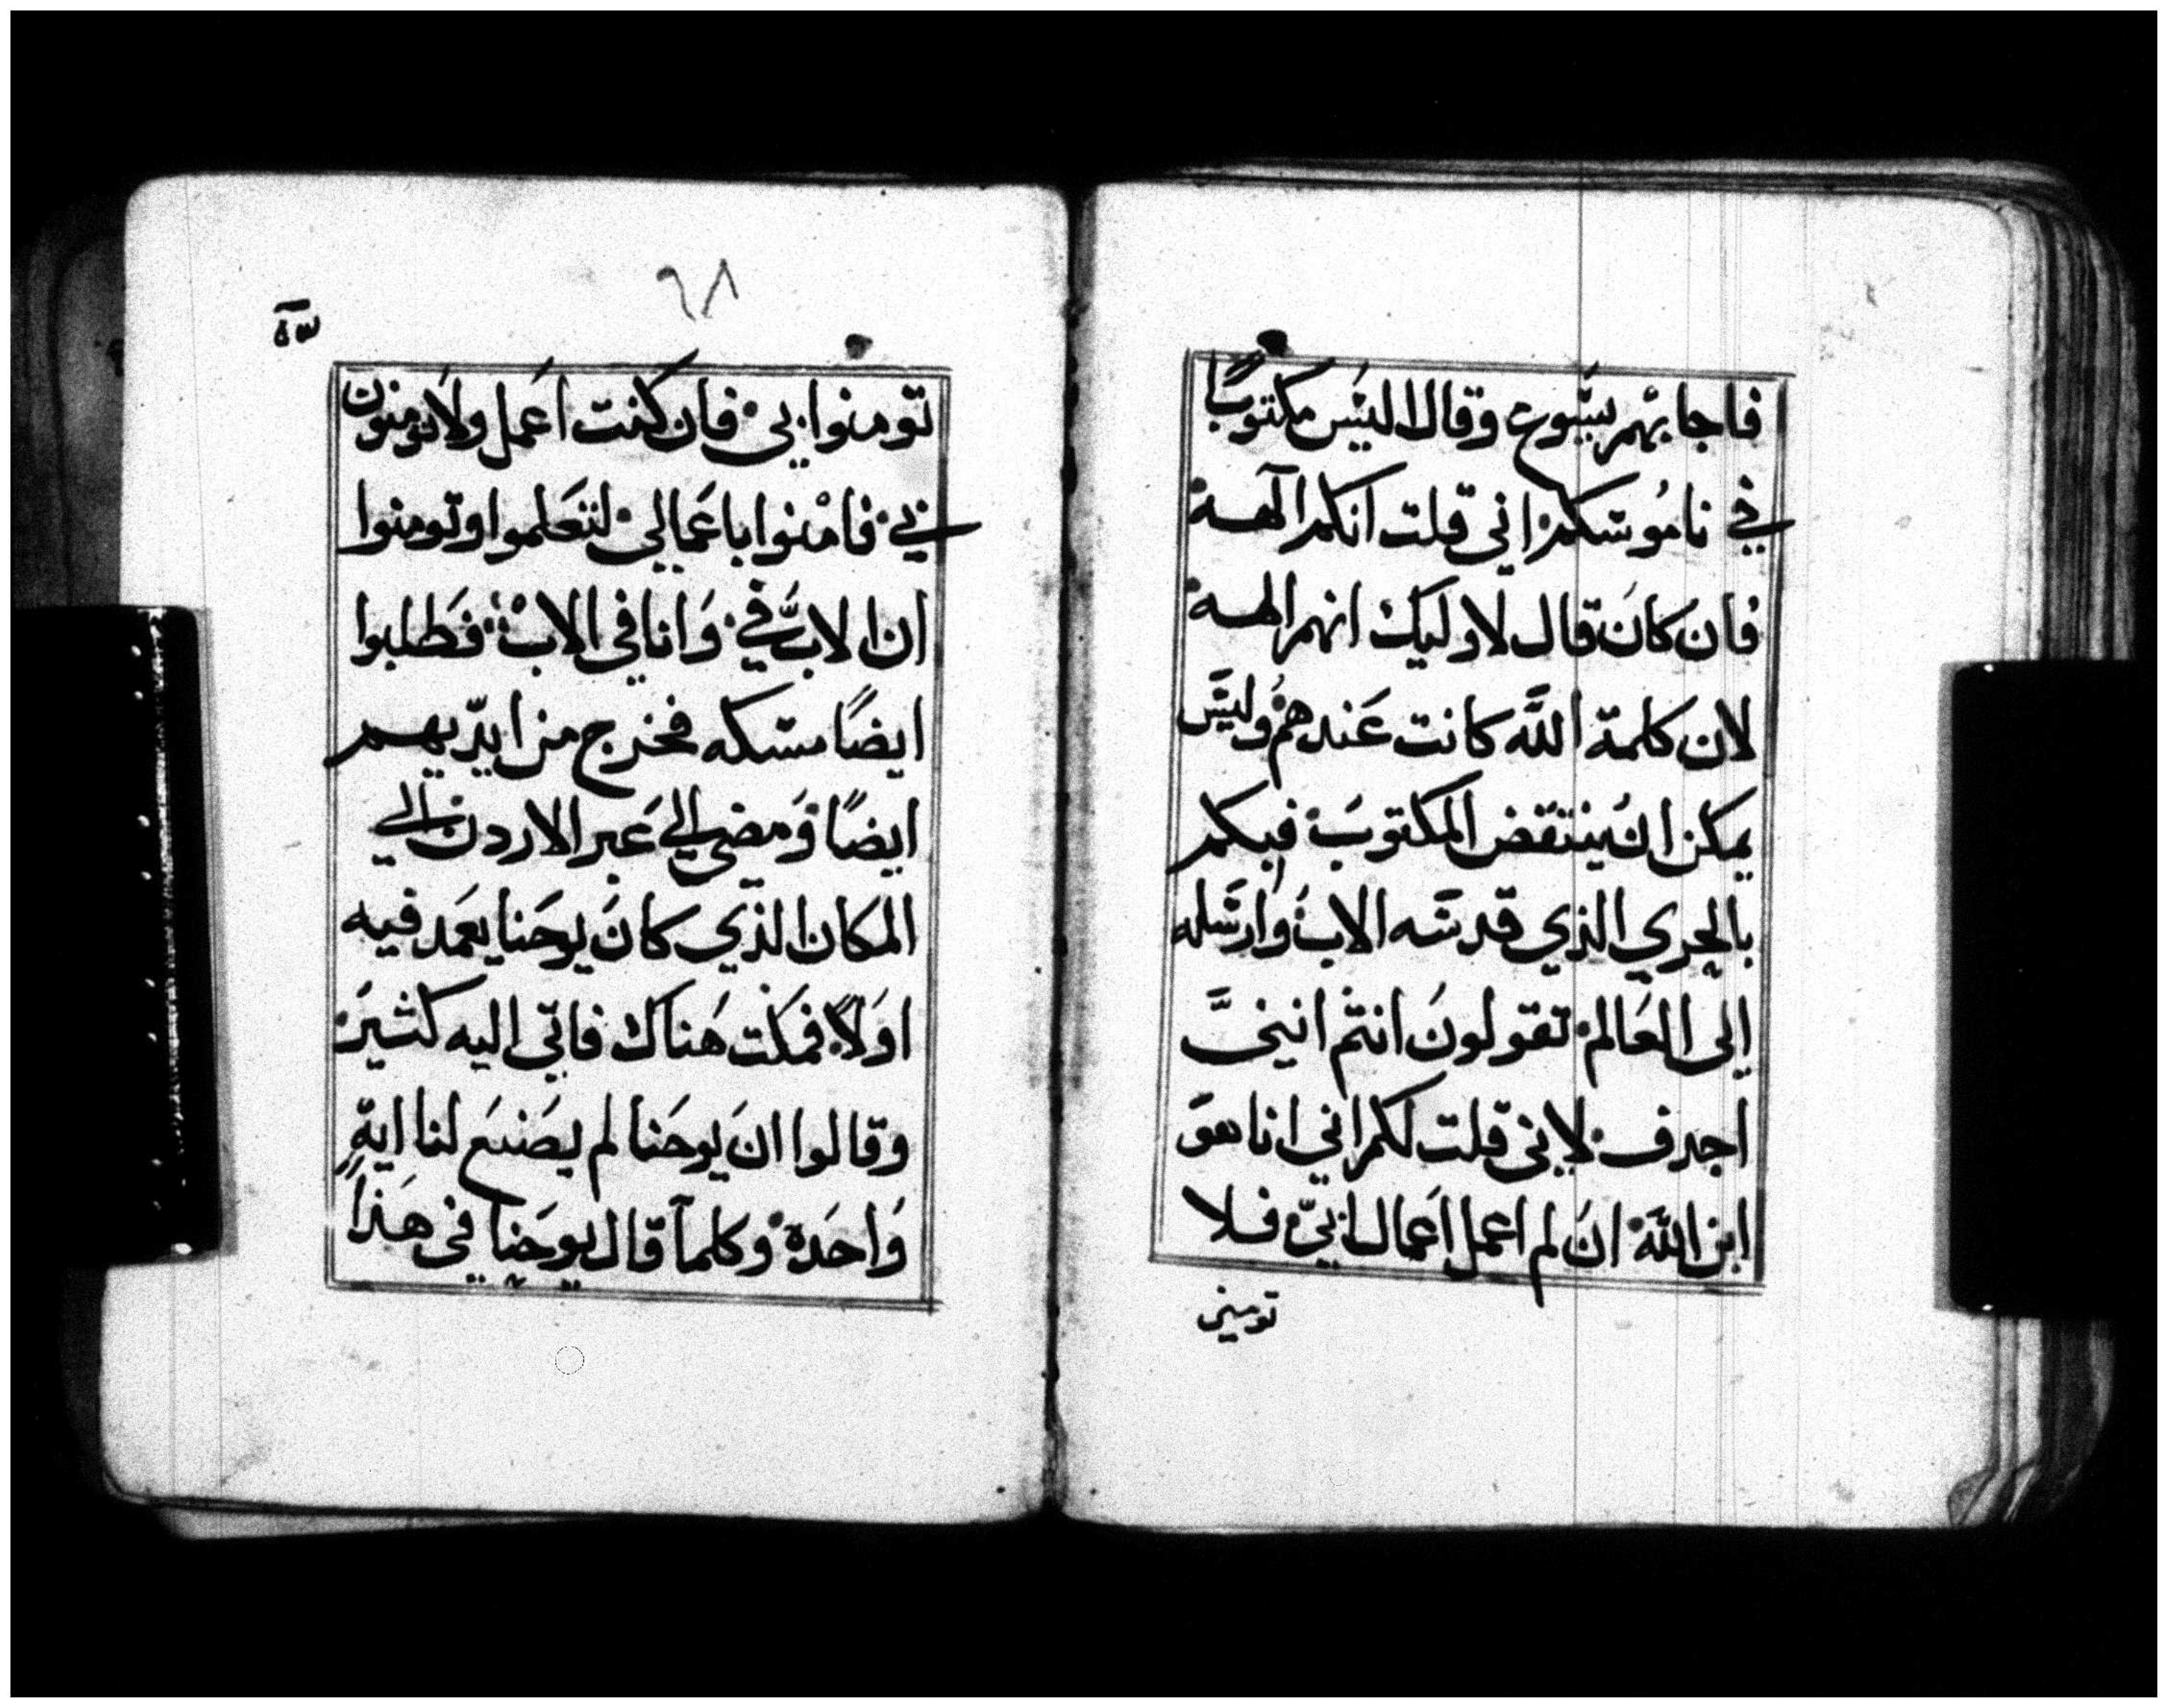 فاجابهم يسوع وقال اليس مكتوبًا
في ناموسكم اني قلت انكم آلهة
فان كان قال لاوليك انهم الهة
لان كلمة اللّه كانت عندهم وليس
يمكن ان ينتقض المكتوب فبكم
بالحري الذي قدسه الاب وارسله
إلى العالم تقولون انتم انني
اجدف لاني قلت لكم اني انا هو
ابن اللّه ان لم اعمل اعمال ابي فلا
٩٨
تومنوا بي فان كنت اعمل ولا تومنون
بي فامنوا باعمالي لتعلموا وتومنوا
ان الاب فيّ وانا في الاب فطلبوا
ايضًا مسكه فخرج من ايديهم
ايضًا ومضى الي عبر الاردن الي
المكان الذي كان يوحنا يعمد فيه
اولاً فمكث هناك فاتي اليه كثير
وقالوا ان يوحنا لم يصنع لنا اية
واحدة وكلما قال يوحنا في هذا